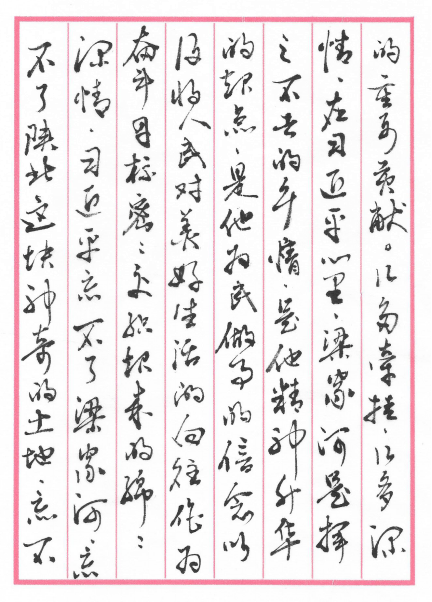 的重要贡献。几多牵挂、几多深
情、在习近平心里、梁家河是挥
之不去的乡情、是他精神升华
的起点、是他为民做事的信念以
及将人民对美好生活的向往作为
奋斗目标密々交织起来的绵々
深情、习近平忘不了梁家河、忘
不了陕北这块神奇的土地、忘不